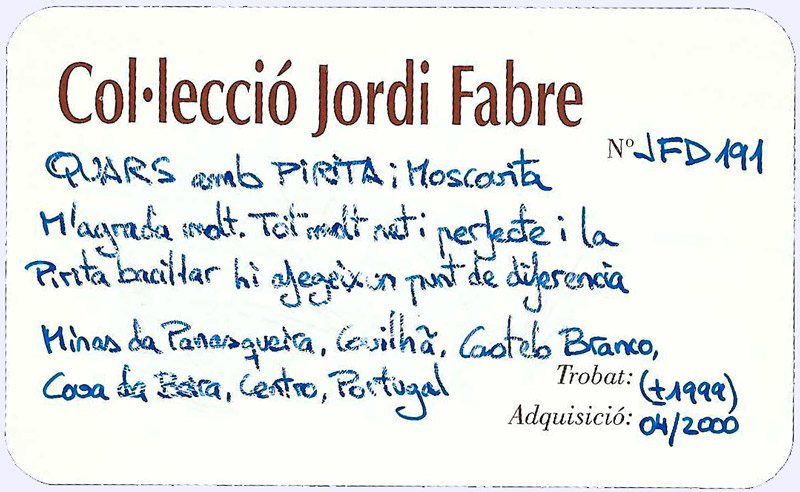 Col·lecció Jordi Fabre
Nº JFD191
QUARS amb PIRITA i Moscovita
M'agrada molt. Tot molt net i perfecte i la
Pirita bacil·lar hi afegeix un punt de diferencia
Minas da Panasqueira, Covilhã, Castelo Branco,
Cova da Beira, Centro, Portugal
Trobat: (±1999)
Adquisició: 04/2000